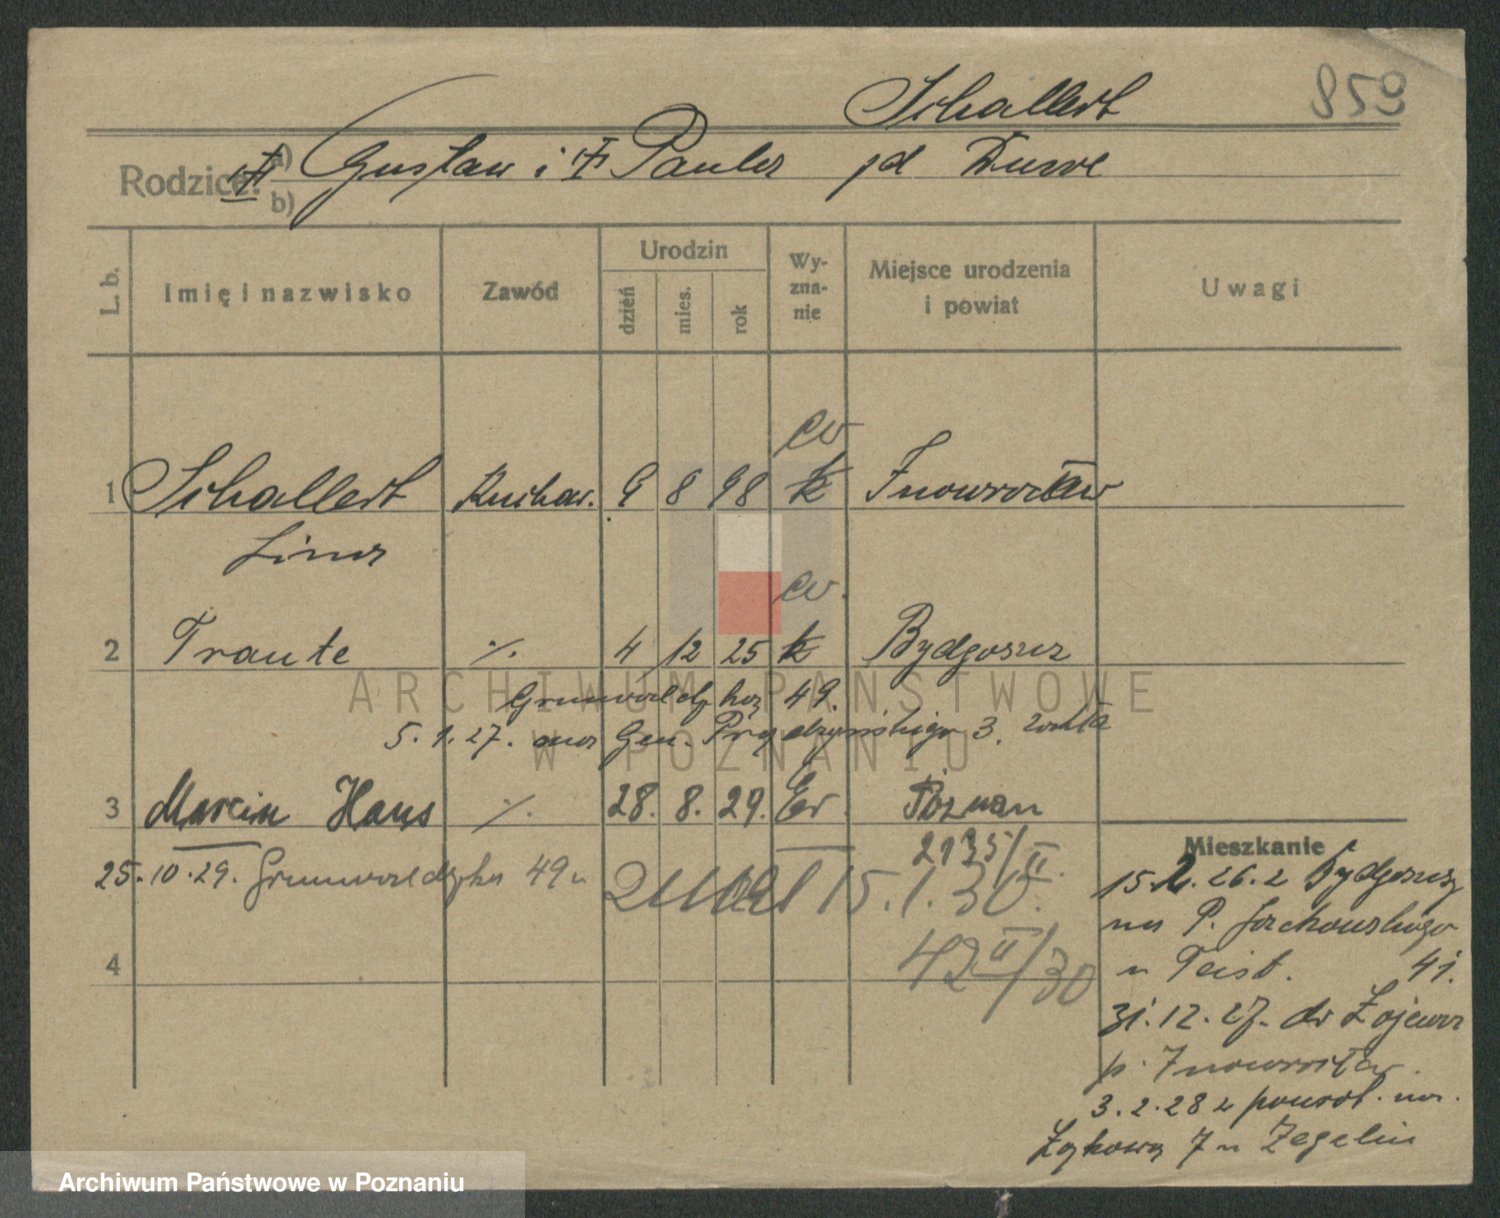 859
Schallert
Rodzice: a) Gustaw i Paula pd Duwe
b)
L. b.
Imię i nazwisko
Zawód
Urodzin
dzień
mies.
rok
Wy-
zna-
nie
Miejsce urodzenia
i powiat
Uwagi
ew
1 Schallert Kuchar. 9 8 98 k Inowrocław
Lina
ew.
2 Traute ·/. 4 12 25 k Bydgoszcz
ARCHIWUM PAŃSTWOWE
W POZNANIU
Grunwaldzką 49.
5.1.27. na Gen. Prądzyńskiego 3.
3 Marcin Hans ·/. 28. 8. 29. Ew. Poznan
2135/II.
25.10.29. Grunwaldzka 49 u
15.1.30.
42 II/30
4
Mieszkanie
15.2.26. z Bydgoszczy
na P.
u Teist. 41.
31.12.27. do Łojewa
p. Inowrocław.
3.2.28 z powrot. na.
Łąkową 7 u Zegelin
Archiwum Państwowe w Poznaniu